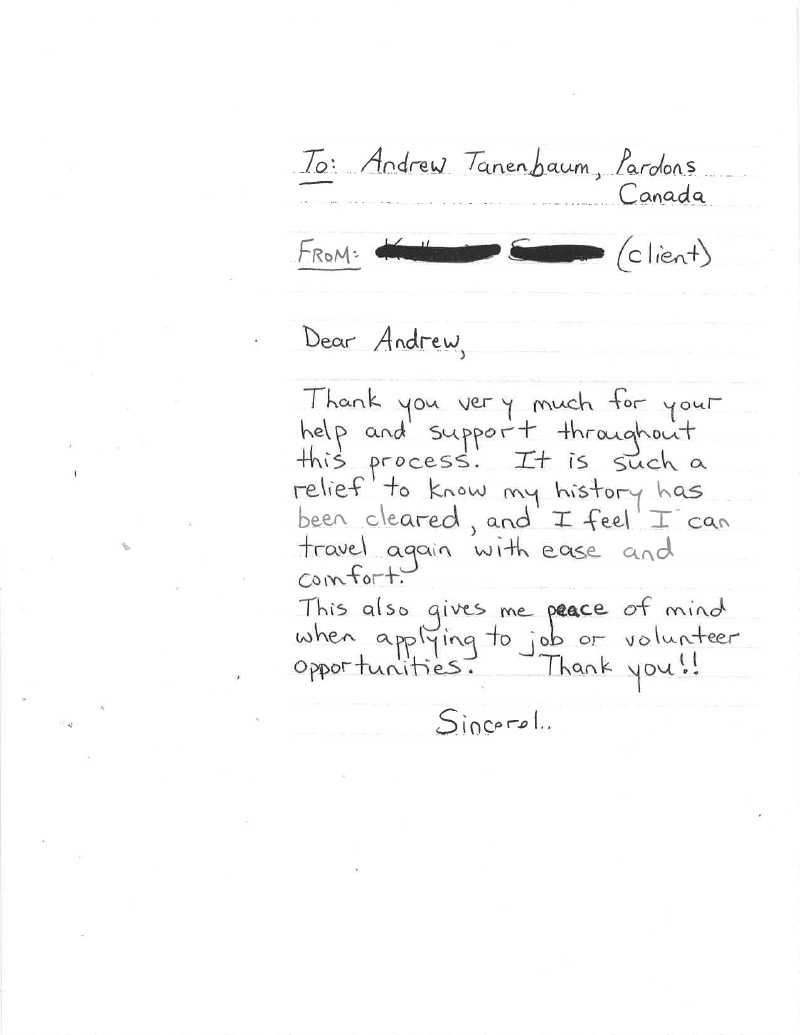 To: Andrew Tanenbaum, Pardons
Canada
FROM: (client)
Dear Andrew,
Thank you very much for your
help and support throughout
this process. It is such a
relief to know my history has
been cleared, and I feel I can
travel again with ease and
comfort.
This also gives me peace of mind
when applying to job or volunteer
opportunities. Thank you!!